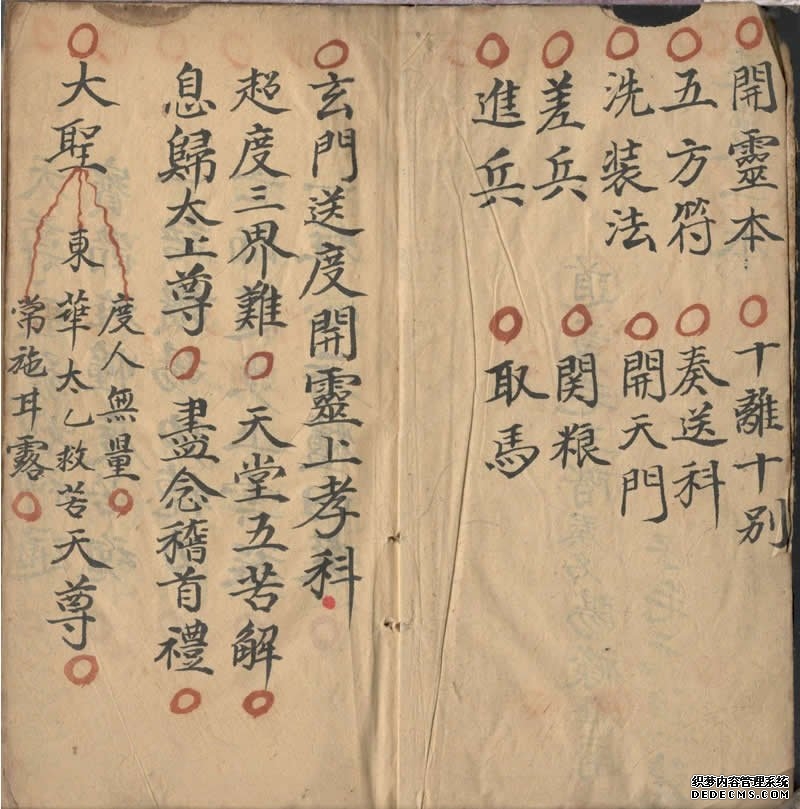 開靈本 十離十別
五方符 奏送科
洗裝法 開天門
差兵 関粮
進兵 取馬
玄門送度開靈上孝科
超度三界難 天堂五苦解
息歸太上尊 盡念稽首禮
大聖
度人無量
東華太乙救苦天尊
常施耳露
织梦内容管理系统
DEDECMS.COM